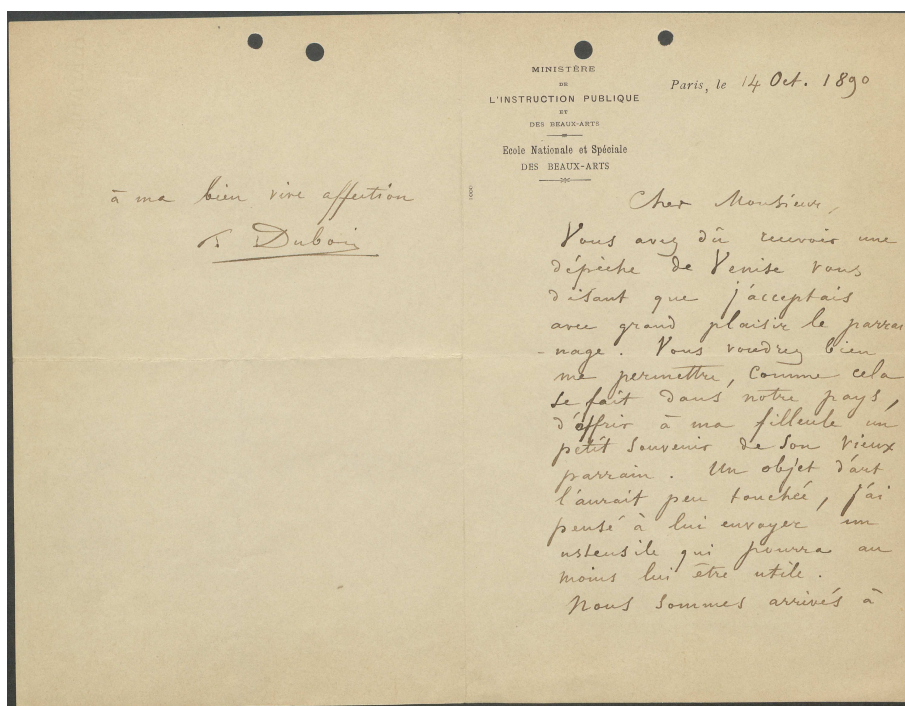 MINISTÈRE
DE
L'INSTRUCTION PUBLIQUE
ET
DES BEAUX-ARTS
Ecole Nationale et Spéciale
DES BEAUX-ARTS
Paris, le 14 Oct. 1890
Cher Monsieur,
Vous avez dû recevoir une
dépèche de Venise vous
disant que j'acceptais
avec grand plaisir le parrai
-nage. Vous voudrez bien
me permettre, comme cela
se fait dans notre pays,
d'offrir à ma filleule un
petit souvenir de son vieux
parrain. Un objet d'art
l'aurait peu touchée, j'ai
pensé à lui envoyer un
ustensile qui pourra au
moins lui être utile.
Nous sommes arrivés à
à ma bien vive affection
Dubois